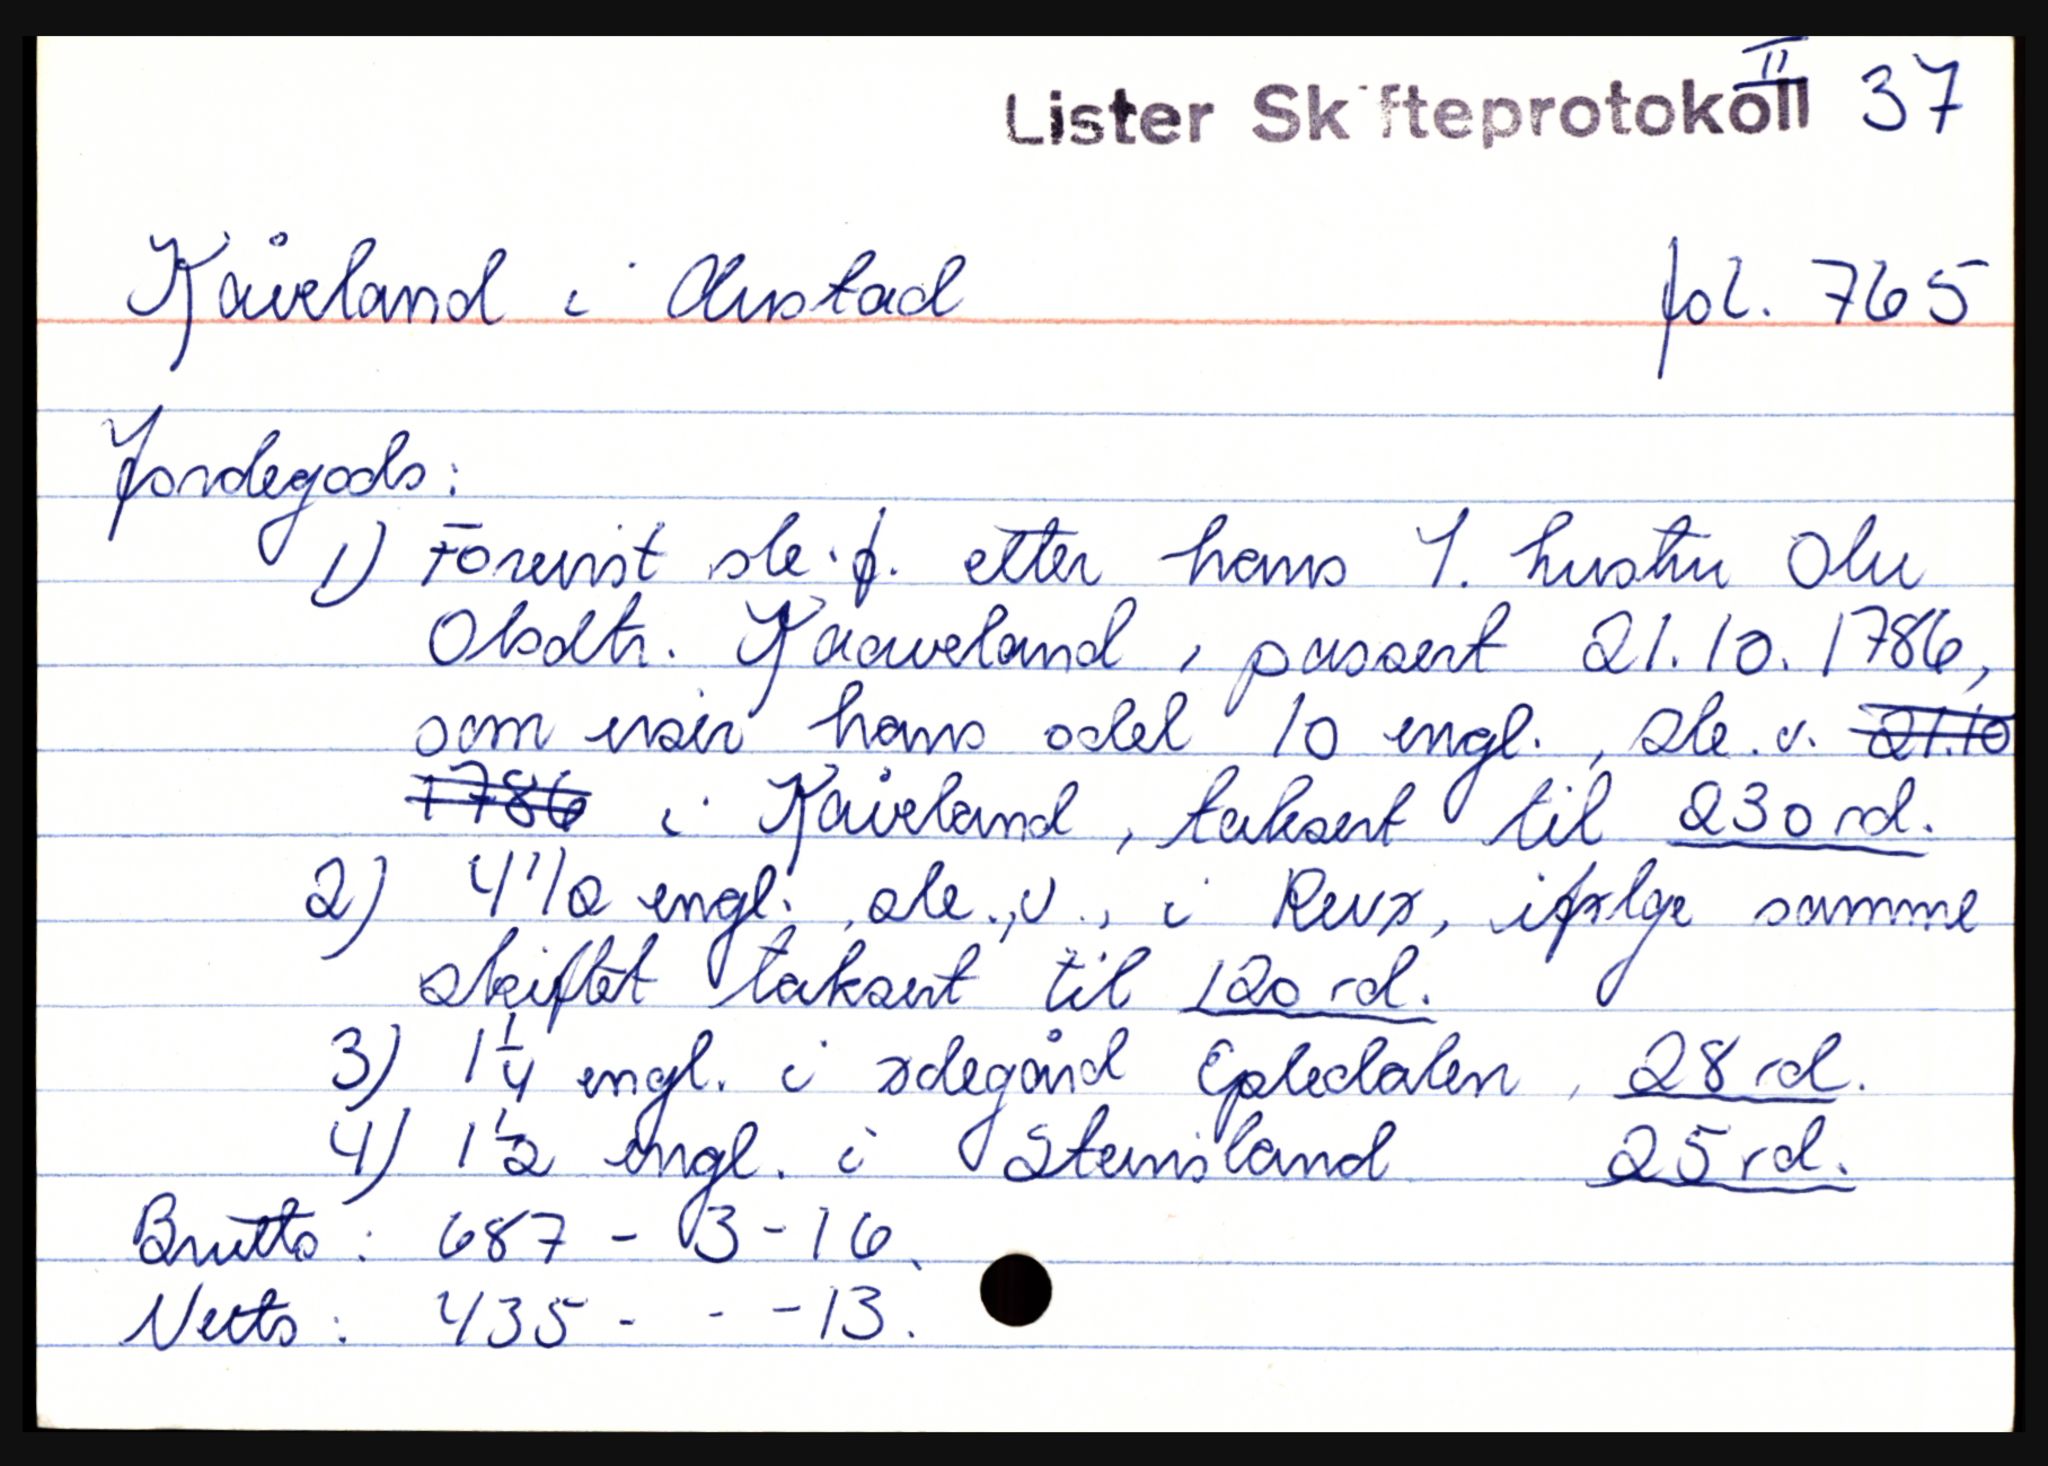 II
Lister Skifteprotokoll 37
Kåveland i Austad fol. 765
Jordegods:
1) Forevist ske.f. etter hans 1. hustru Olu
Olsdtr. Kaaveland, passert 21.10.1786,
som viser hans odel 10 engl., ske. v. ~~21.10~~
~~1786~~ i Kåveland, taksert til 230 rd.
2) 4 1/2 engl., ske., v., i Revø, ifølge samme
skiftet taksert til 120 rd.
3) 1 1/4 engl. i ødegård Epledalen, 28 rd.
4) 1 1/2 engl. i Steinsland 25 rd.
Brutto: 687 - 3 - 16.
Netto: 435 - - - 13.